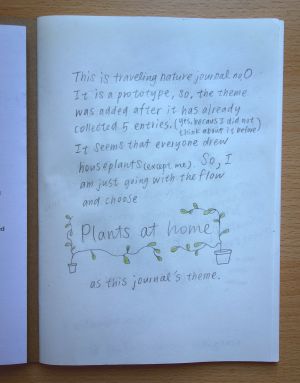 This is traveling nature journal no0
It is a prototype, so, the theme
was added after it has already
collected 5 entries. (yes, becaus I did not
think about it before)
It seems that everyone drew
houseplants (except me). So, I
am just going with the flow
and choose
Plants at home
as this journal's theme.